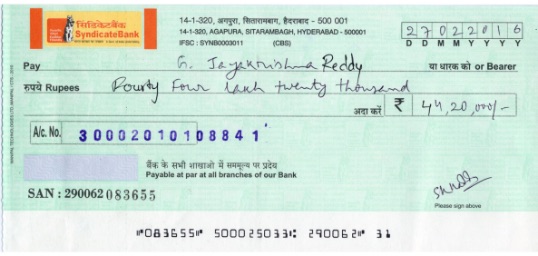 सिंडिकेटबैंक
SyndicateBank
14-1-320, अगपुरा, सितारामबाग, हैदराबाद - 500 001
14-1-320, AGAPURA, SITARAMBAGH, HYDERABAD - 500001
IFSC : SYNB0003011 (CBS)
2 7 0 2 2 0 1 6
D D M M Y Y Y Y
Pay G. Jayakrishna Reddy या धारक को or Bearer
रुपये Rupees Fourty Four lakh twenty thousand
अदा करें ₹ 44,20,000/-
A/c. No. 30002010108841
बैंक के सभी शाखाओं में सममूल्य पर प्रदेय
Payable at par at all branches of our Bank
SAN : 290062 083655
Please sign above
⑈083655⑈ 500025033⑆ 290062⑈ 31